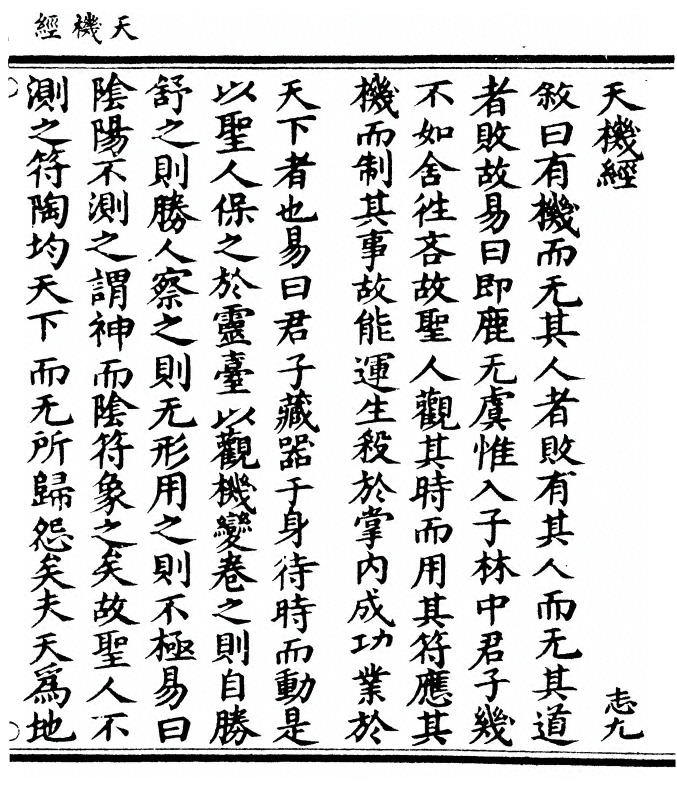 天機經
天機經
志九
敘曰有機而无其人者敗有其人而无其道
者敗故易曰即鹿无虞惟入于林中君子幾
不如舍徃吝故聖人觀其時而用其符應其
機而制其事故能運生殺於掌內成功業於
天下者也易曰君子藏器于身待時而動是
以聖人保之於靈臺以觀機變卷之則自勝
舒之則勝人察之則无形用之則不極易曰
陰陽不測之謂神而陰符象之矣故聖人不
測之符陶均天下而无所歸怨矣夫天爲地